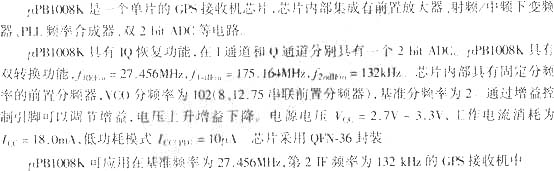 μPB1008K 是一个单片的 GPS 接收机芯片,芯片内部集成有前置放大器、射频/中频下变频
器、PLL 频率合成器、双 2 bit ADC 等电路。
μPB1008K 具有 IQ 恢复功能,在 I 通道和 Q 通道分别具有一个 2 bit ADC。μPB1008K 具有
双转换功能,fREFin=27.456MHz,f1stIFin=175.164MHz,f2ndIFin=132kHz。芯片内部具有固定分频
率的前置分频器,VCO 分频率为 102(8、12.75 串联前置分频器),基准分频率为 2。通过增益控
制引脚可以调节增益,电压上升增益下降。电源电压 VCC=2.7V~3.3V,工作电流消耗为
ICC=18.0mA,低功耗模式 ICC(PD)=10μA。芯片采用 QFN-36 封装。
μPB1008K 可应用在基准频率为 27.456MHz,第 2 IF 频率为 132 kHz 的 GPS 接收机中。